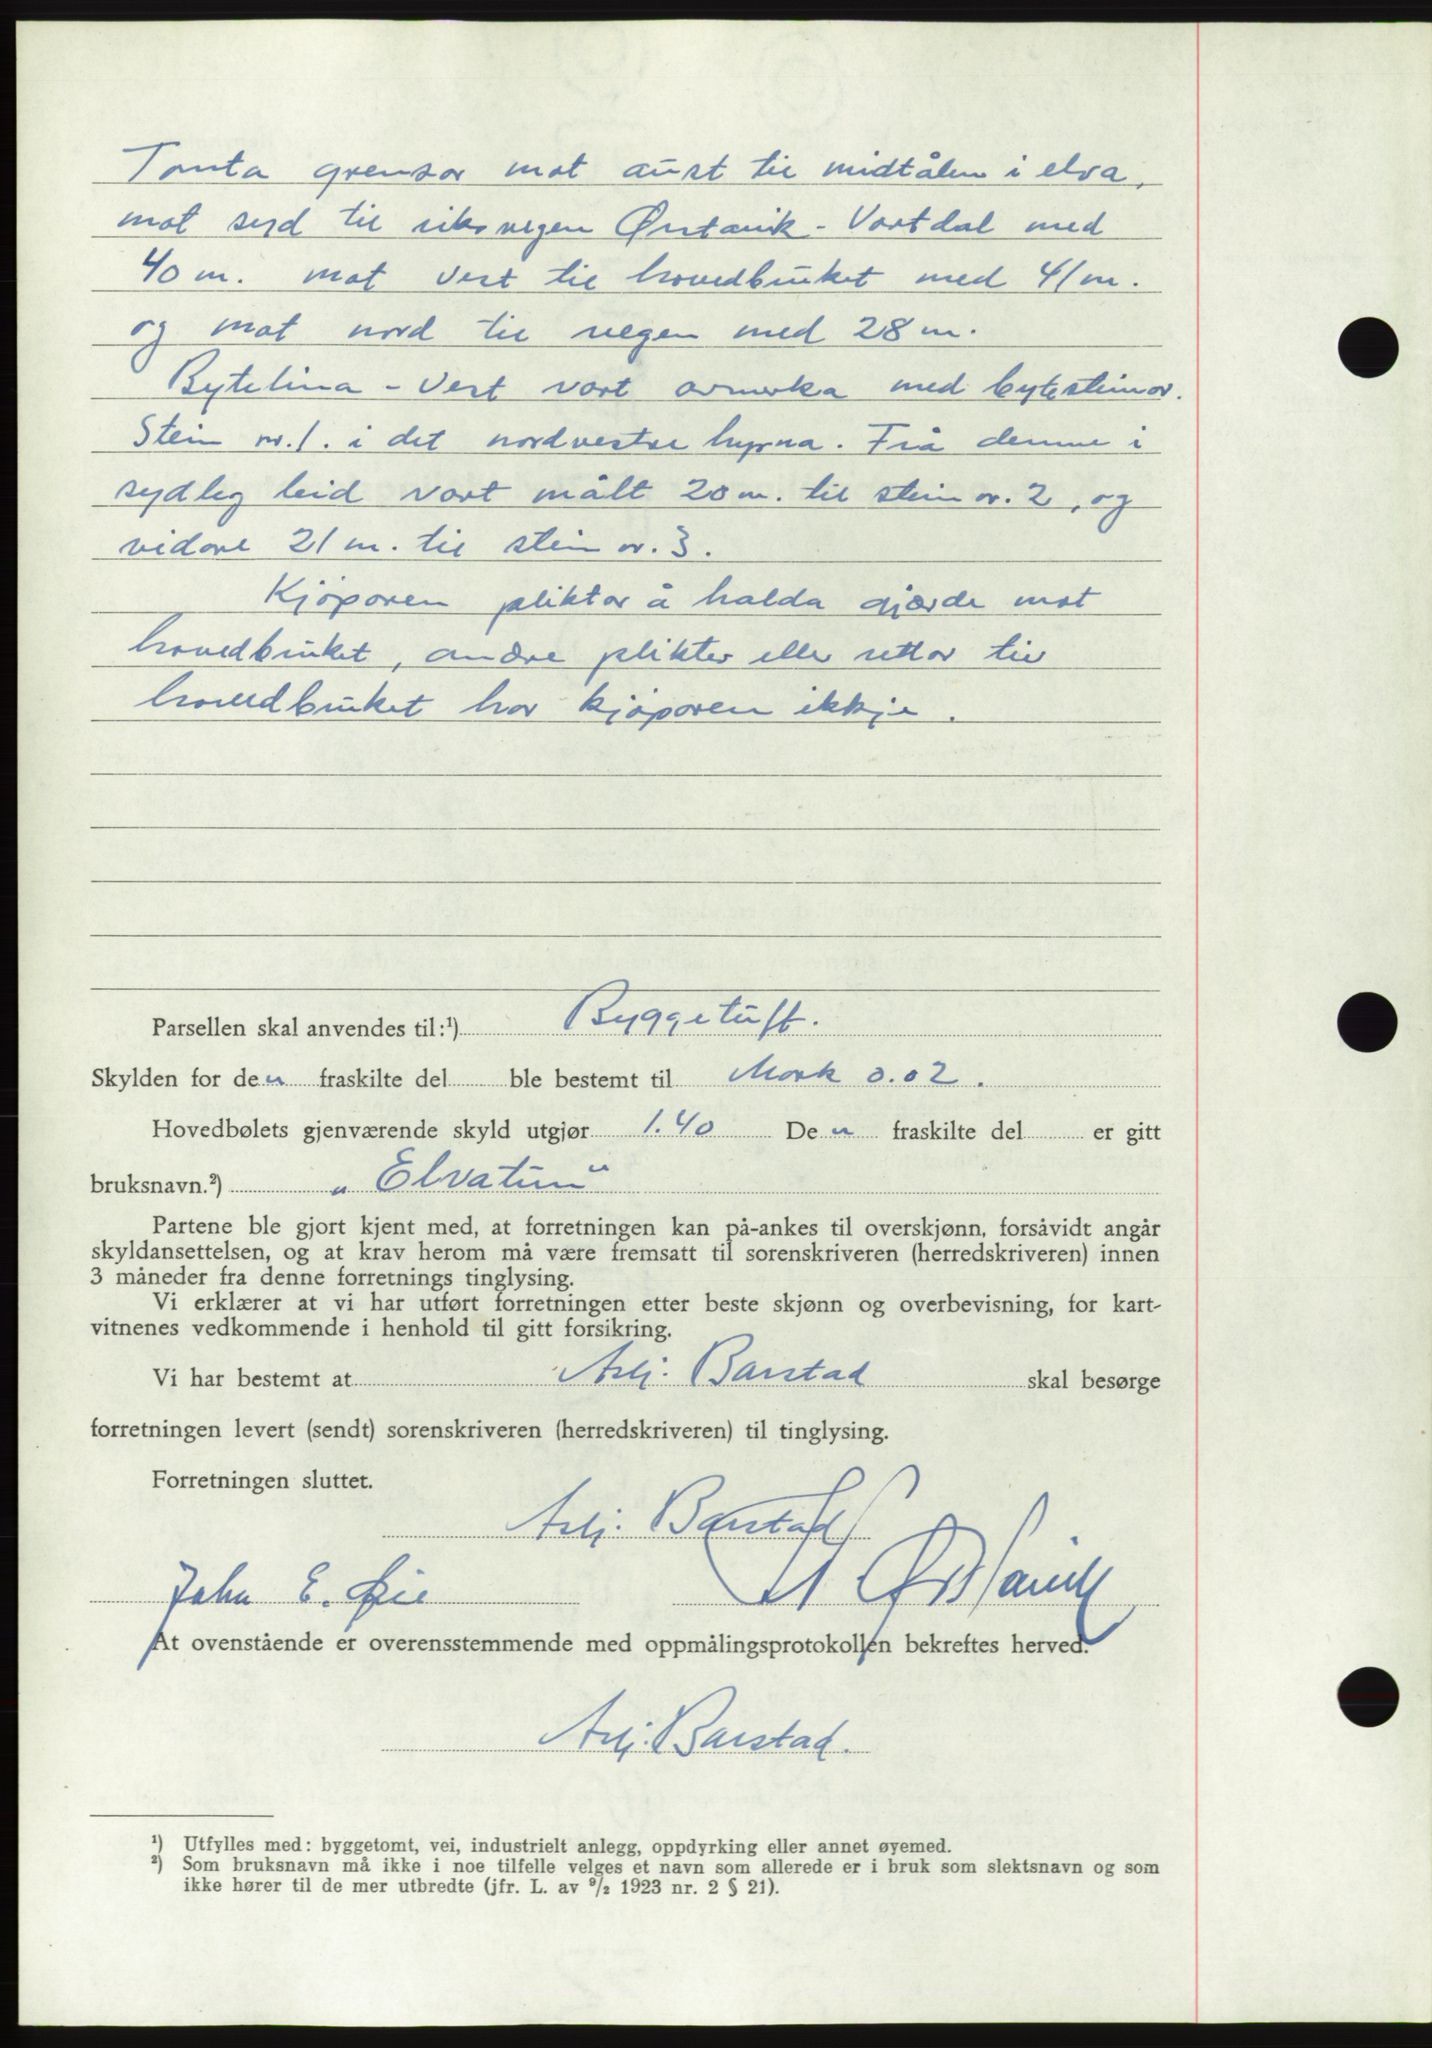 Tomta grensar mot aust til midtålen i elva,
mot syd til riksvegen Ørstavik - Vartdal med
40 m. mot vest til hovedbruket med 41 m.
og mot nord til vegen med 28 m.
Bytelina - vest vart avmerka med bytesteinar.
Stein nr. 1. i det nordvestre hyrna. Frå denne i
sydleg leid vart målt 20 m. til stein nr. 2, og
vidare 21 m. til stein nr. 3.
Kjøparen pliktar å halda gjærde mot
hovedbruket, andre plikter eller rettar til
hovedbruket har kjøparen ikkje.
Parsellen skal anvendes til:¹) Byggetuft.
Skylden for den fraskilte del ble bestemt til Mark 0.02.
Hovedbølets gjenværende skyld utgjør 1.40 Den fraskilte del er gitt
bruksnavn.²) „Elvatun"
Partene ble gjort kjent med, at forretningen kan på-ankes til overskjønn, forsåvidt angår
skyldansettelsen, og at krav herom må være fremsatt til sorenskriveren (herredskriveren) innen
3 måneder fra denne forretnings tinglysing.
Vi erklærer at vi har utført forretningen etter beste skjønn og overbevisning, for kart-
vitnenes vedkommende i henhold til gitt forsikring.
Vi har bestemt at Aslj. Barstad skal besørge
forretningen levert (sendt) sorenskriveren (herredskriveren) til tinglysing.
Forretningen sluttet.
Aslj. Barstad
John E. Øie Ørstavik
At ovenstående er overensstemmende med oppmålingsprotokollen bekreftes herved.
Aslj. Barstad.
¹) Utfylles med: byggetomt, vei, industrielt anlegg, oppdyrking eller annet øyemed.
²) Som bruksnavn må ikke i noe tilfelle velges et navn som allerede er i bruk som slektsnavn og som
ikke hører til de mer utbredte (jfr. L. av ⁹/₂ 1923 nr. 2 § 21).